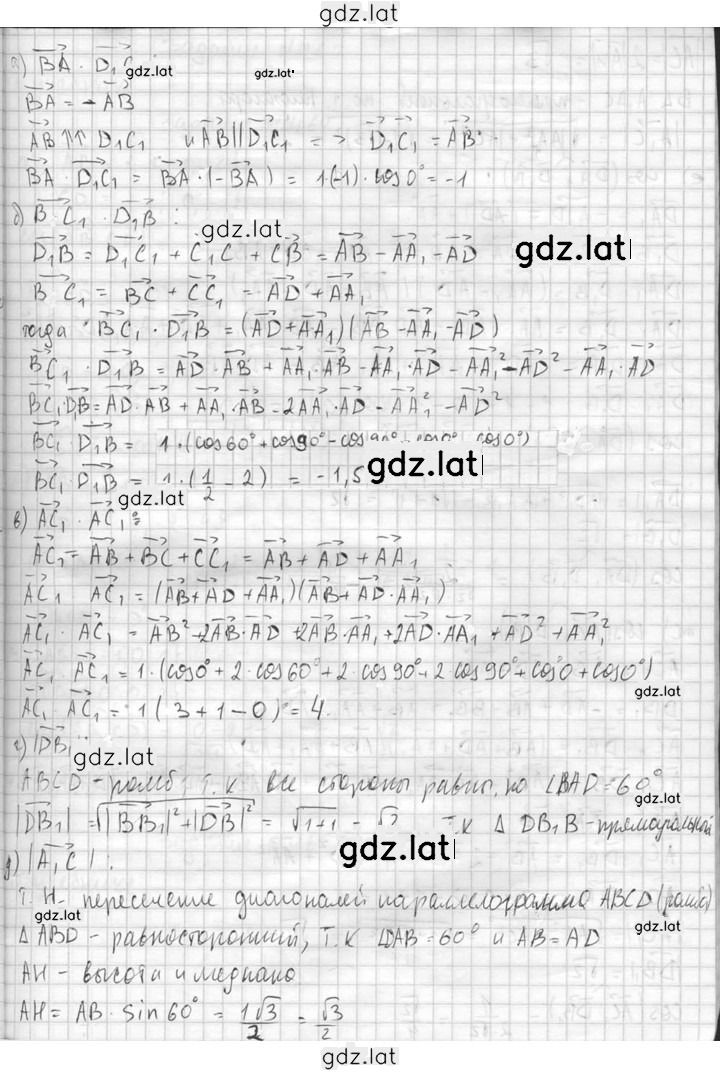 gdz.lat
а) BA · D₁C gdz.lat gdz.lat
BA = -AB
AB ↑↑ D₁C₁ и AB || D₁C₁ => D₁C₁ = AB
BA · D₁C₁ = BA · (-BA) = 1·(-1) · cos 0° = -1
б) BC₁ · D₁B : gdz.lat
D₁B = D₁C₁ + C₁C + CB = AB - AA₁ - AD gdz.lat
BC₁ = BC + CC₁ = AD + AA₁
тогда BC₁ · D₁B = (AD + AA₁)(AB - AA₁ - AD)
BC₁ · D₁B = AD · AB + AA₁ · AB - AA₁ · AD - AA₁² - AD² - AA₁ · AD
BC₁ · D₁B = AD · AB + AA₁ · AB - 2AA₁ · AD - AA₁² - AD²
BC₁ · D₁B = 1 · (cos 60° + cos 90° - cos cos 0°)
BC₁ · D₁B = 1 · (1/2 - 2) = -1,5 gdz.lat
gdz.lat
в) AC₁ · AC₁ :
AC₁ = AB + BC + CC₁ = AB + AD + AA₁
gdz.lat
AC₁ AC₁ = (AB + AD + AA₁)(AB + AD · AA₁)
AC₁ · AC₁ = AB² + 2AB · AD + 2AB · AA₁ + 2AD · AA₁ + AD² + AA₁²
AC₁ AC₁ = 1 · (cos 0° + 2 · cos 60° + 2 · cos 90° + 2 cos 90° + cos 0 + cos 0°)
gdz.lat
AC₁ AC₁ = 1 (3 + 1 - 0) = 4
г) |DB₁| gdz.lat
ABCD - ромб, т.к все стороны равны, но ∠BAD = 60°
|DB₁| = √|BB₁|² + |DB|² = √1+1 = √2 т.к Δ DB₁B - прямоугольный
д) |A₁C| : gdz.lat
т. H - пересечение диагоналей параллелограмма ABCD (ромба)
gdz.lat
Δ ABD - равносторонний, т.к ∠DAB = 60° и AB = AD
AH - высота и медиана
AH = AB · sin 60° = 1√3/2 = √3/2
gdz.lat